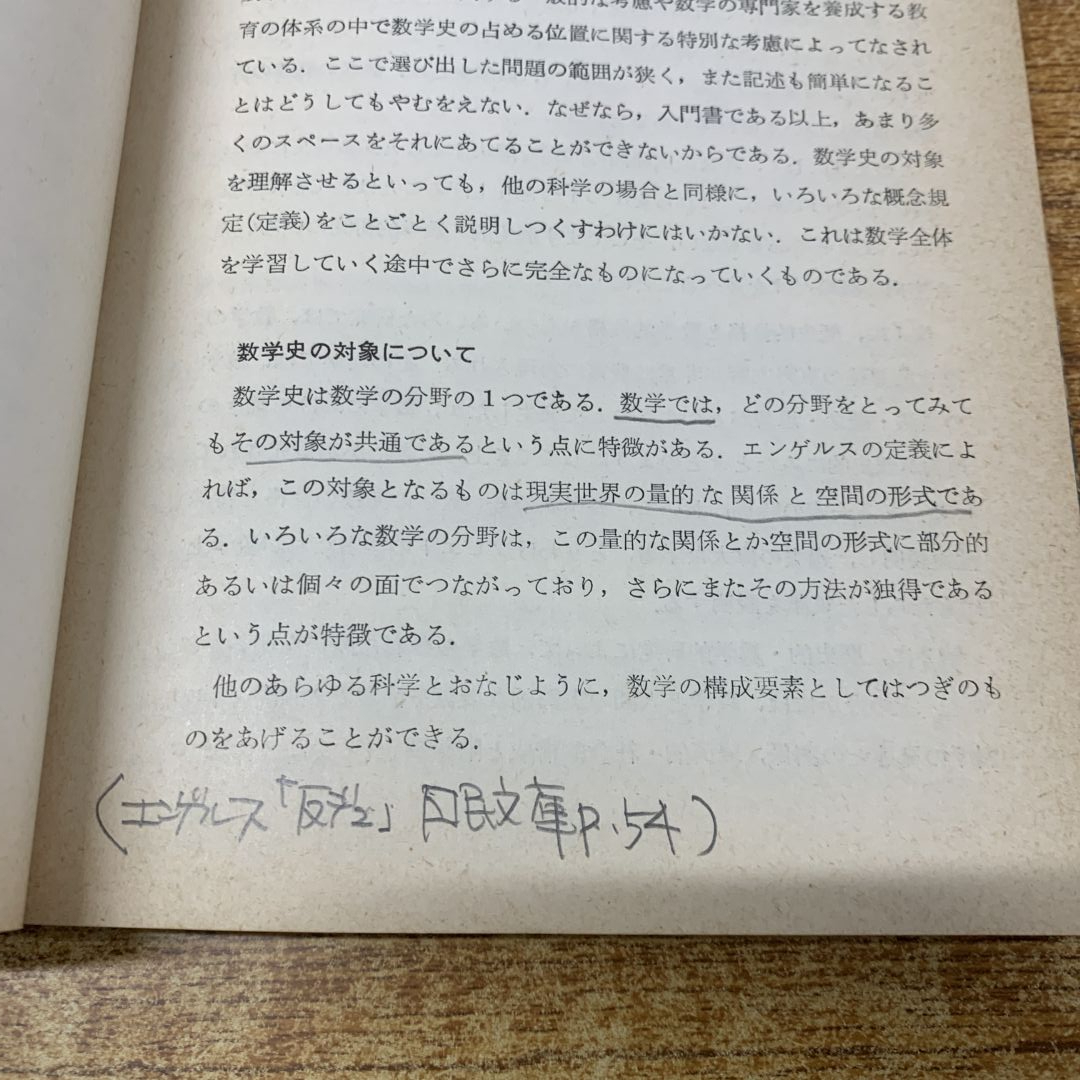 般的な考慮や数学の専門家を養成する教
育の体系の中で数学史の占める位置に関する特別な考慮によってなされ
ている．ここで選び出した問題の範囲が狭く，また記述も簡単になるこ
とはどうしてもやむをえない．なぜなら，入門書である以上，あまり多
くのスペースをそれにあてることができないからである．数学史の対象
を理解させるといっても，他の科学の場合と同様に，いろいろな概念規
定(定義)をことごとく説明しつくすわけにはいかない．これは数学全体
を学習していく途中でさらに完全なものになっていくものである．
数学史の対象について
数学史は数学の分野の１つである．数学では，どの分野をとってみて
もその対象が共通であるという点に特徴がある．エンゲルスの定義によ
れば，この対象となるものは現実世界の量的な関係と空間の形式であ
る．いろいろな数学の分野は，この量的な関係とか空間の形式に部分的
あるいは個々の面でつながっており，さらにまたその方法が独得である
という点が特徴である．
他のあらゆる科学とおなじように，数学の構成要素としてはつぎのも
のをあげることができる．
(エンゲルス「反デュ」国民文庫P.54)